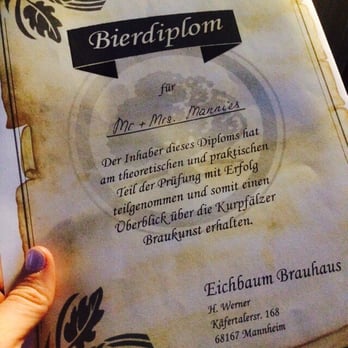 Bierdiplom
für
Mr + Mrs. Mannies
Der Inhaber dieses Diploms hat
am theoretischen und praktischen
Teil der Prüfung mit Erfolg
teilgenommen und somit einen
Überblick über die Kurpfälzer
Braukunst erhalten.
Eichbaum Brauhaus
H. Werner
Käfertalersr. 168
68167 Mannheim